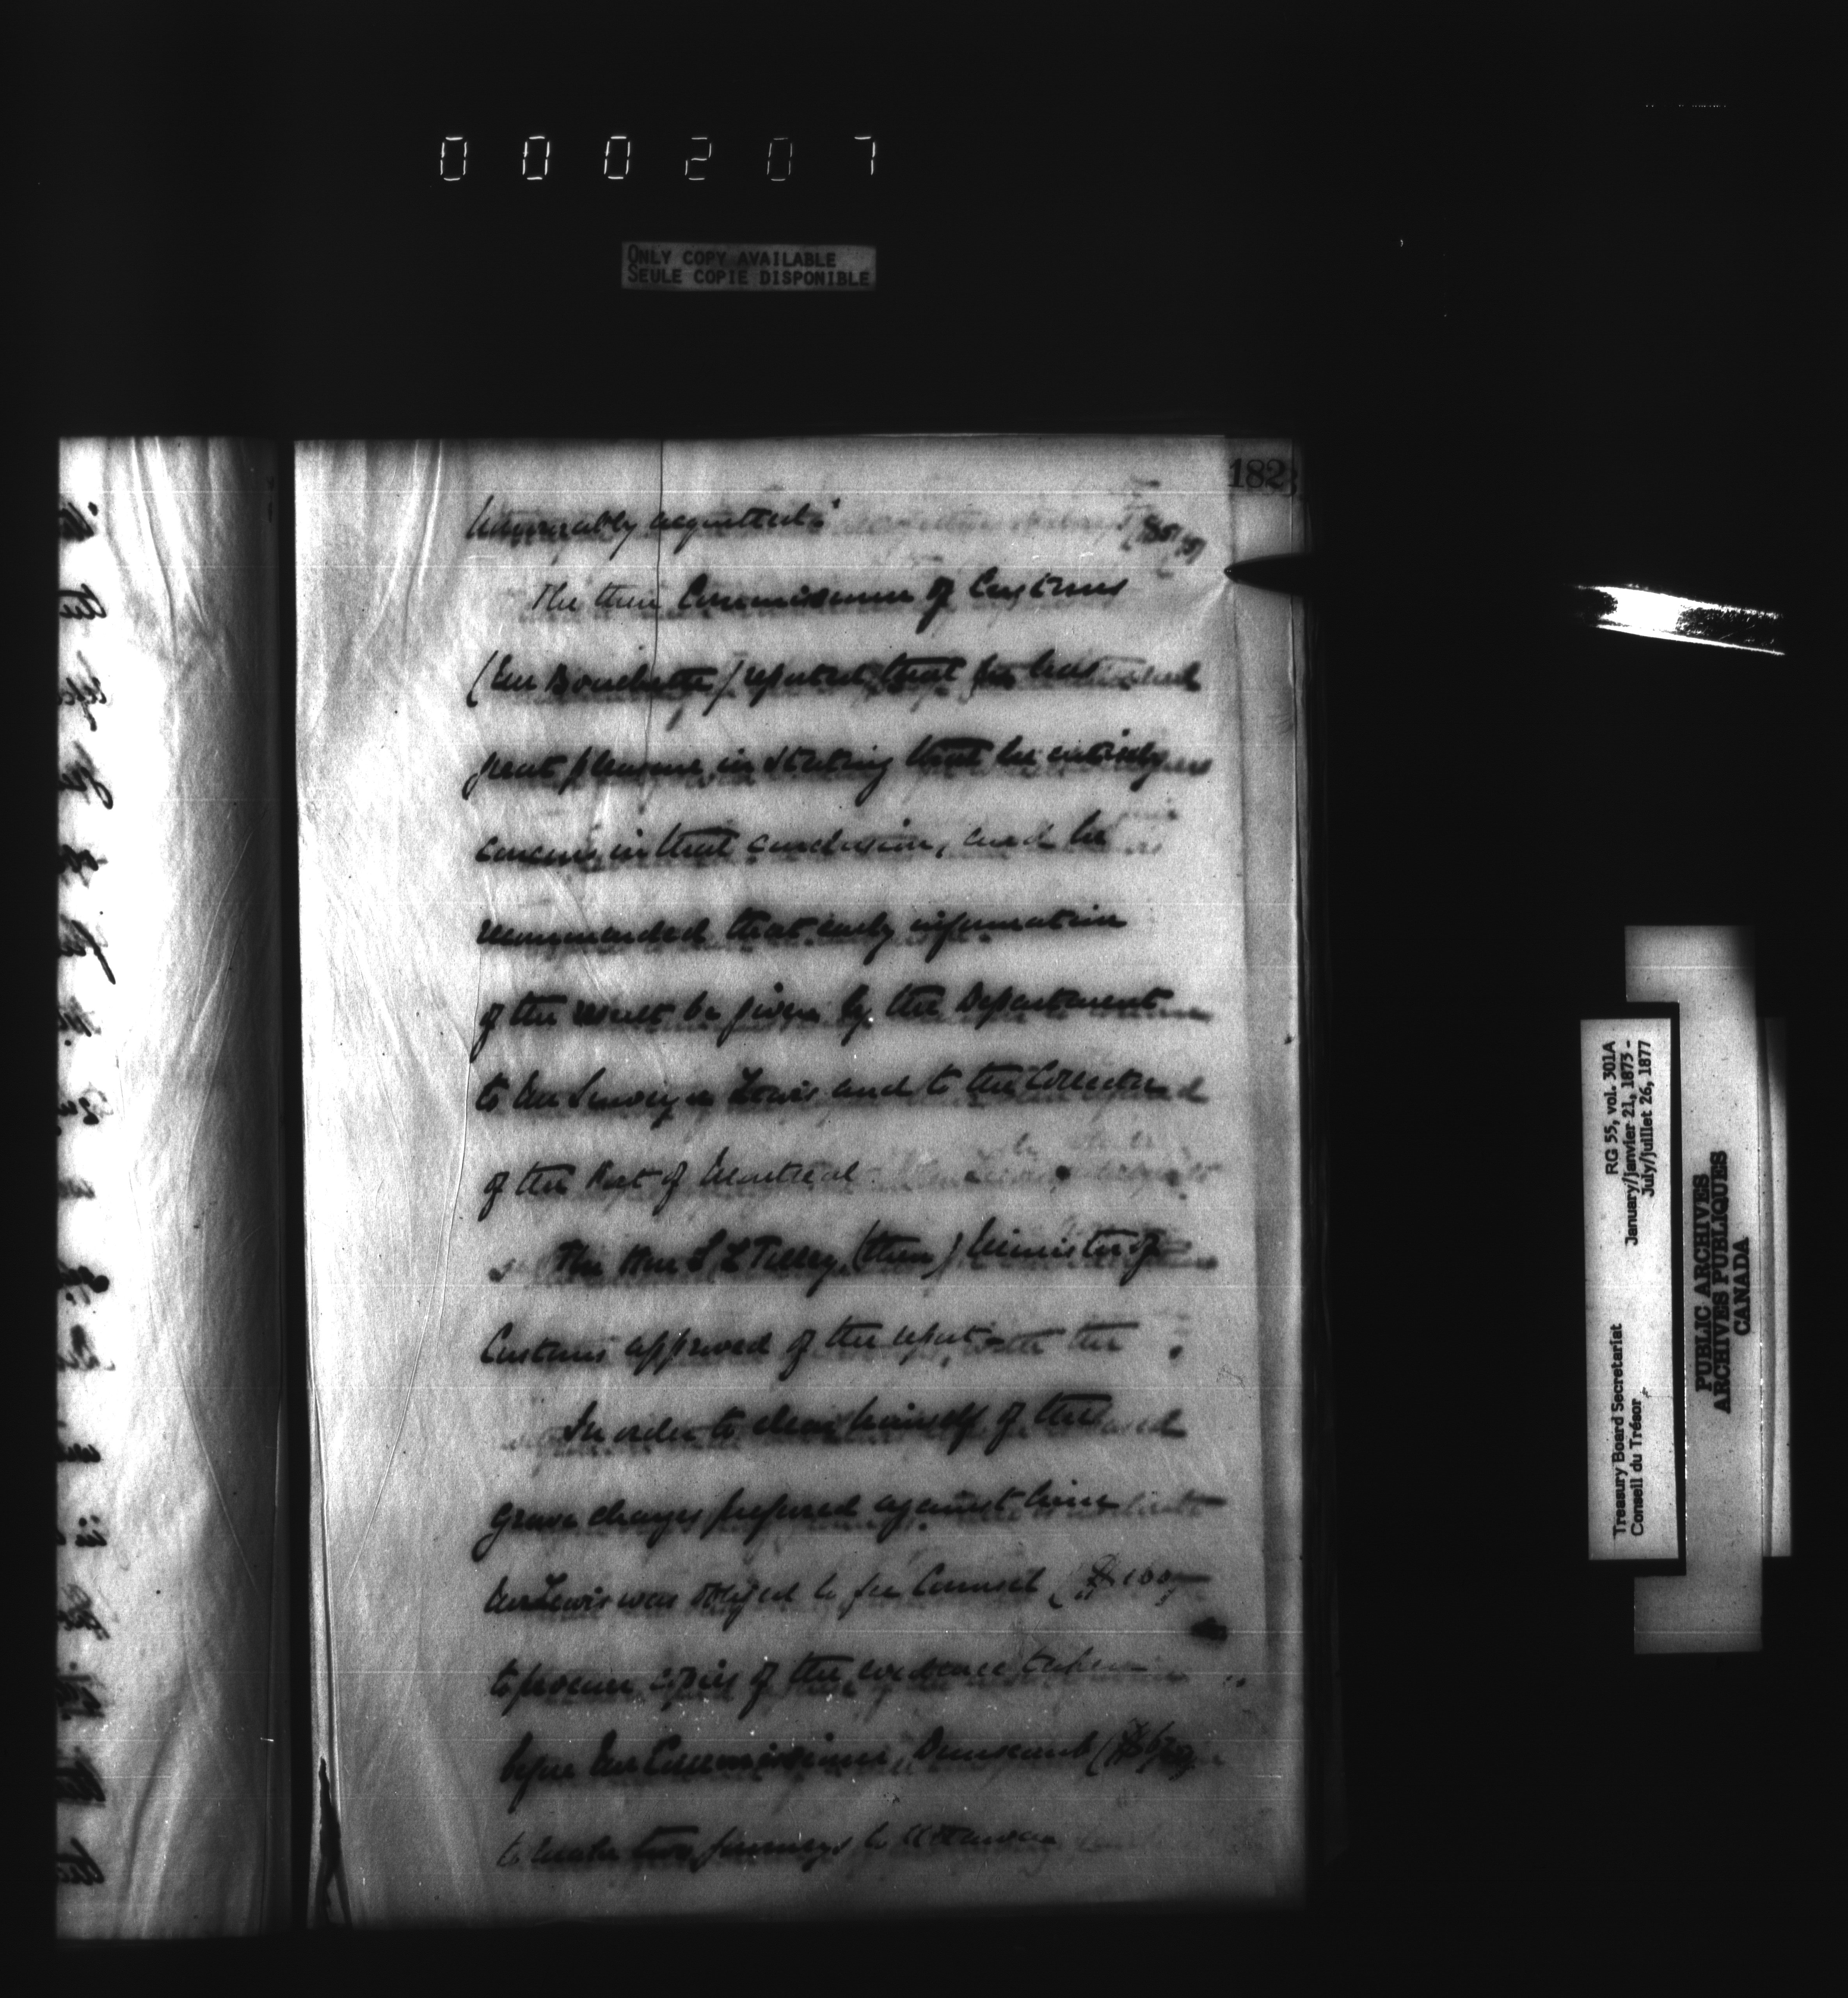 000207
ONLY COPY AVAILABLE
SEULE COPIE DISPONIBLE
182
honorably acquitted"
The then Commissioner of Customs
(Mr Bouchette) reported that he has
great pleasure in stating that he entirely
concurs in that conclusion, and he
recommended that early information
of the result be given by the Department
to Mr Surveyor Lewis and to the Collector
of the Port of Montreal
The Hon S L Tilley (then) Minister of
Customs approved of the report
In order to clear himself of the
grave charges preferred against him
Mr Lewis was obliged to fee Counsel ($100
to procure copies of the evidence taken
before Mr Commissioner Dunscomb
to make two journeys to Ottawa
Treasury Board Secretariat RG 55, vol. 301A
Conseil du Trésor January/janvier 21, 1873 -
July/juillet 26, 1877
PUBLIC ARCHIVES
ARCHIVES PUBLIQUES
CANADA